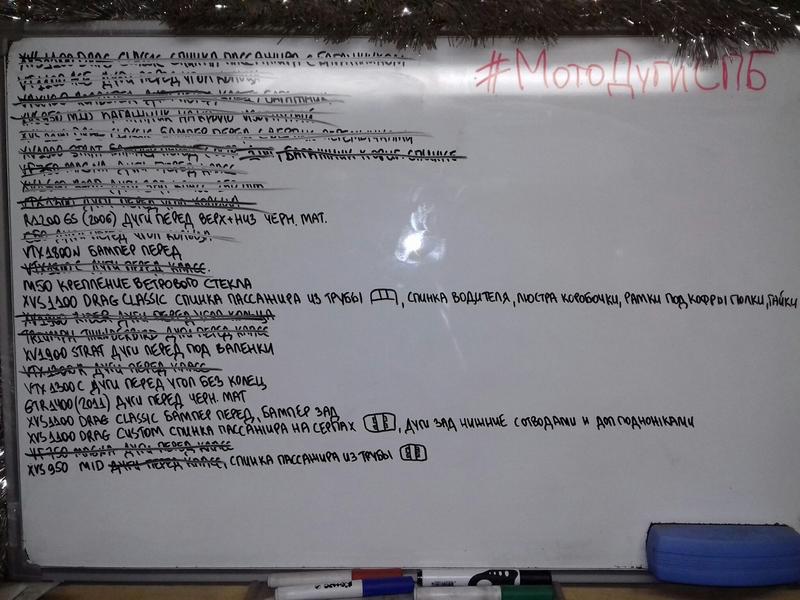 #МотоДугиСПБ
XVS1100 DRAG CLASSIC СПИНКА ПАССАЖИРА С БАГАЖНИКОМ
VT1100 ACE ДУГИ ПЕРЕД УГОЛ КОЛЬЦА
XVS950 MID БАГАЖНИК НА КРЫЛО
DRAG CLASSIC БАМПЕР ПЕРЕД С ВЕРТИК. ПЕРЕМЫЧКАМИ
STRAT БАМПЕР ПЕРЕД БАГАЖНИК К ОРИГ. СПИНКЕ
VF750 MAGNA ДУГИ ПЕРЕД КЛАСС
ДУГИ ЗАД КЛАСС
ДУГИ ПЕРЕД УГОЛ КОЛЬЦА
R1200GS (2006) ДУГИ ПЕРЕД ВЕРХ+НИЗ ЧЕРН. МАТ.
ДУГИ ПЕРЕД УГОЛ КОЛЬЦА.
VTX1800N БАМПЕР ПЕРЕД
C ДУГИ ПЕРЕД КЛАСС.
M50 КРЕПЛЕНИЕ ВЕТРОВОГО СТЕКЛА
XVS1100 DRAG CLASSIC СПИНКА ПАССАЖИРА ИЗ ТРУБЫ, СПИНКА ВОДИТЕЛЯ, ЛЮСТРА КОРОБОЧКИ, РАМКИ ПОД КОФРЫ ГАЙКИ
ДУГИ ПЕРЕД УГОЛ КОЛЬЦА
TRIUMPH THUNDERBIRD ДУГИ ПЕРЕД КЛАСС
XV1900 STRAT ДУГИ ПЕРЕД ПОД ВАЛЕНКИ
VTX1300R ДУГИ ПЕРЕД КЛАСС
VTX1300C ДУГИ ПЕРЕД УГОЛ БЕЗ КОЛЕЦ
GTR1400(2011) ДУГИ ПЕРЕД ЧЕРН. МАТ
XVS1100 DRAG CLASSIC БАМПЕР ПЕРЕД, БАМПЕР ЗАД
XVS1100 DRAG CUSTOM СПИНКА ПАССАЖИРА НА СЕРГАХ, ДУГИ ЗАД НИЖНИЕ С ОТВОДАМИ И ДОП ПОДНОЖКАМИ
VF750 MAGNA ДУГИ ПЕРЕД КЛАСС
XVS950 MID ДУГИ ПЕРЕД КЛАСС, СПИНКА ПАССАЖИРА ИЗ ТРУБЫ